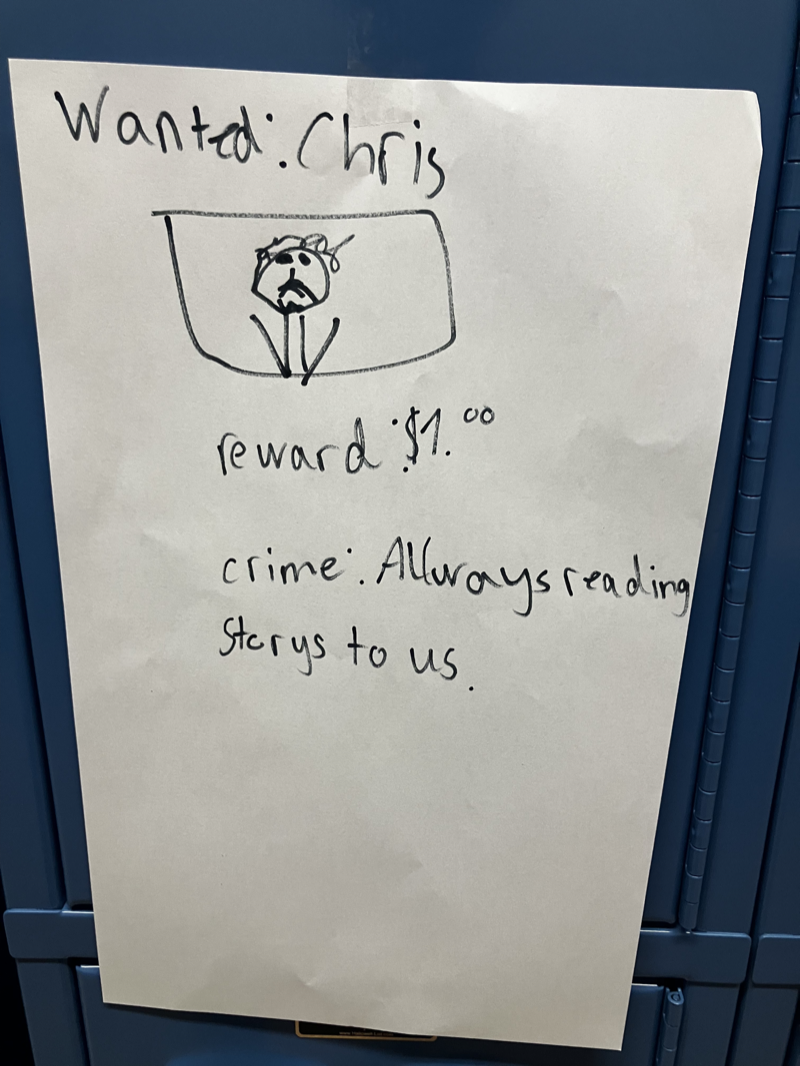 Wanted: Chris
reward: $1.00
crime: Allways reading
Storys to us.